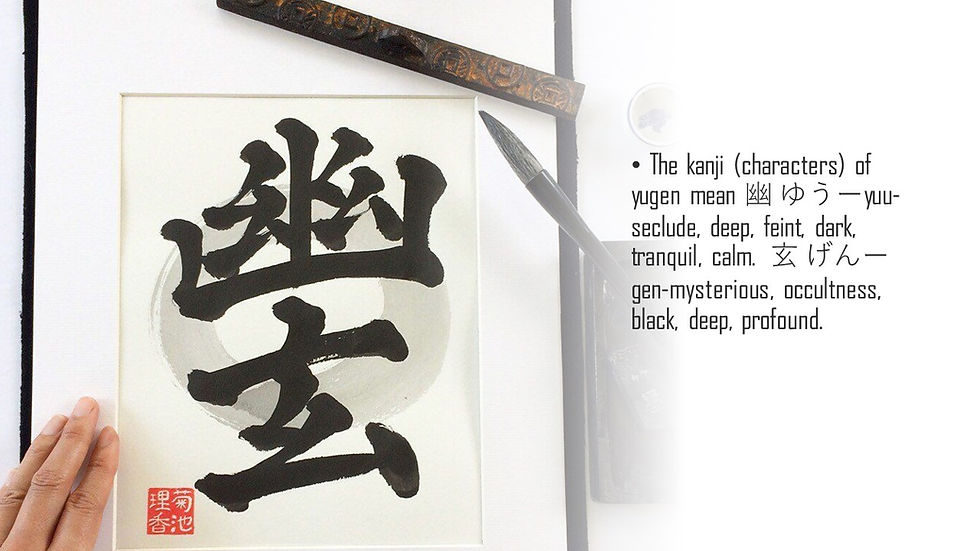 幽
玄
菊池
理香
• The kanji (characters) of
yugen mean 幽 ゆうー yuu-
seclude, deep, feint, dark,
tranquil, calm. 玄 げんー
gen-mysterious, occultness,
black, deep, profound.